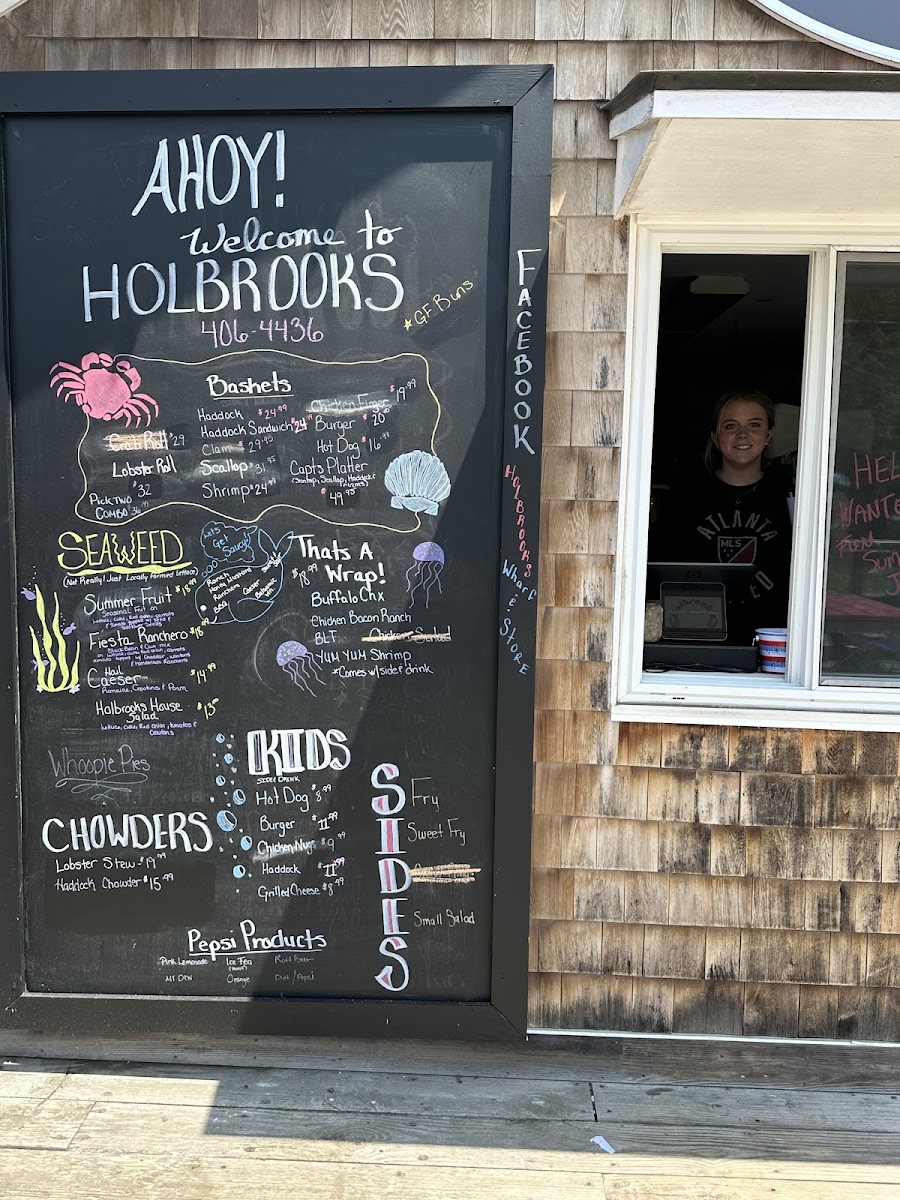 AHOY!
Welcome to
HOLBROOKS
406-4436
* GF Buns
Baskets
Haddock $24.99
Haddock Sandwich $24.99
Clam $29.95
Scallop $31.95
Shrimp $24.99
Crab Roll $29
Lobster Roll
$32
Pick TWO
COMBO $36.99
Chicken Finger $19.99
Burger $20
Hot Dog $16.99
Capt's Platter
(Shrimp, Scallop, Haddock &
$49.95
SEAWEED
(Not Really! Just Locally farmed lettuce)
Summer Fruit $18.99
Seasonal Fruit on
Fiesta Ranchero $18.99
Black Bean & Corn mix
Caeser $14.99
Romaine, Croutons & Parm
Holbrooks House
Salad $13
Lettuce, Cuke, Red onion, tomatoes &
Croutons
Let's
Get
Saucy!
Ranch
Honey Mustard
BBQ
Caeser
Balsamic
Thats A
$18.99 Wrap!
Buffalo Chx
Chicken Bacon Ranch
BLT Chicken Salad
YUM YUM Shrimp
*Comes w/ side & drink
Whoopie Pies
CHOWDERS
Lobster Stew - $19.99
Haddock Chowder $15.99
KIDS
SIDE & DRINK
Hot Dog $8.99
Burger $11.99
Chicken Nugs $9.99
Haddock $11.99
Grilled Cheese $8.99
SIDES
Fry
Sweet Fry
Small Salad
Pepsi Products
Pink Lemonade Ice Tea Root Beer
MT. DEW Orange Diet / Pepsi
FACEBOOK
HOLBROOKS
Wharf
&
STORE
ATLANTA
MLS
Holbrooks
HEL
WANTE